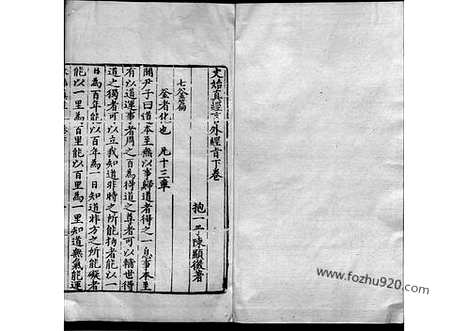 文始真經言外經旨下卷
抱一子陳顯微著
七釜篇
釜者化也 凡十三章
關尹子曰道本至無以事歸道者得之一息事本至
有以道運事者周之百為得道之尊者可以輔世得
道之獨者可以立我知道非時之所能拘者能以一
日為百年能以百年為一日知道非方之所能礙者
能以一里為百里能以百里為一里知道無氣能運
www.fozhu920.com